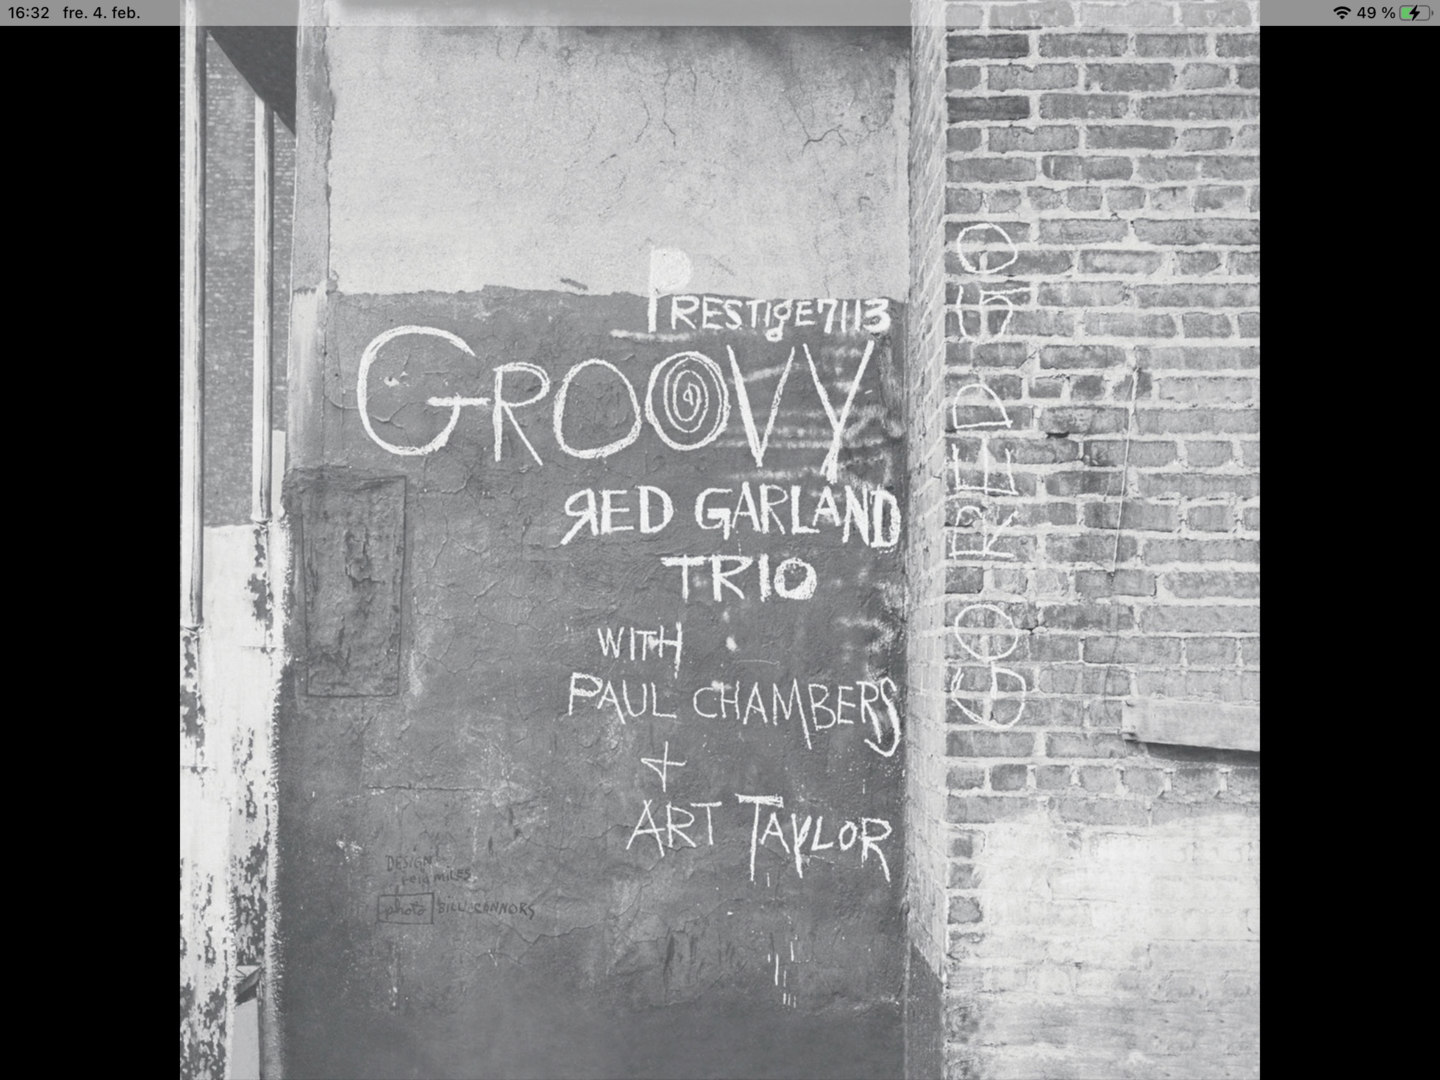 16:32 fre. 4. feb.
49 %
PRESTIGE 7113
GROOVY
RED GARLAND
TRIO
WITH
PAUL CHAMBERS
+
ART TAYLOR
GO RED GO
DESIGN
reid MILES
photo BILL CONNORS